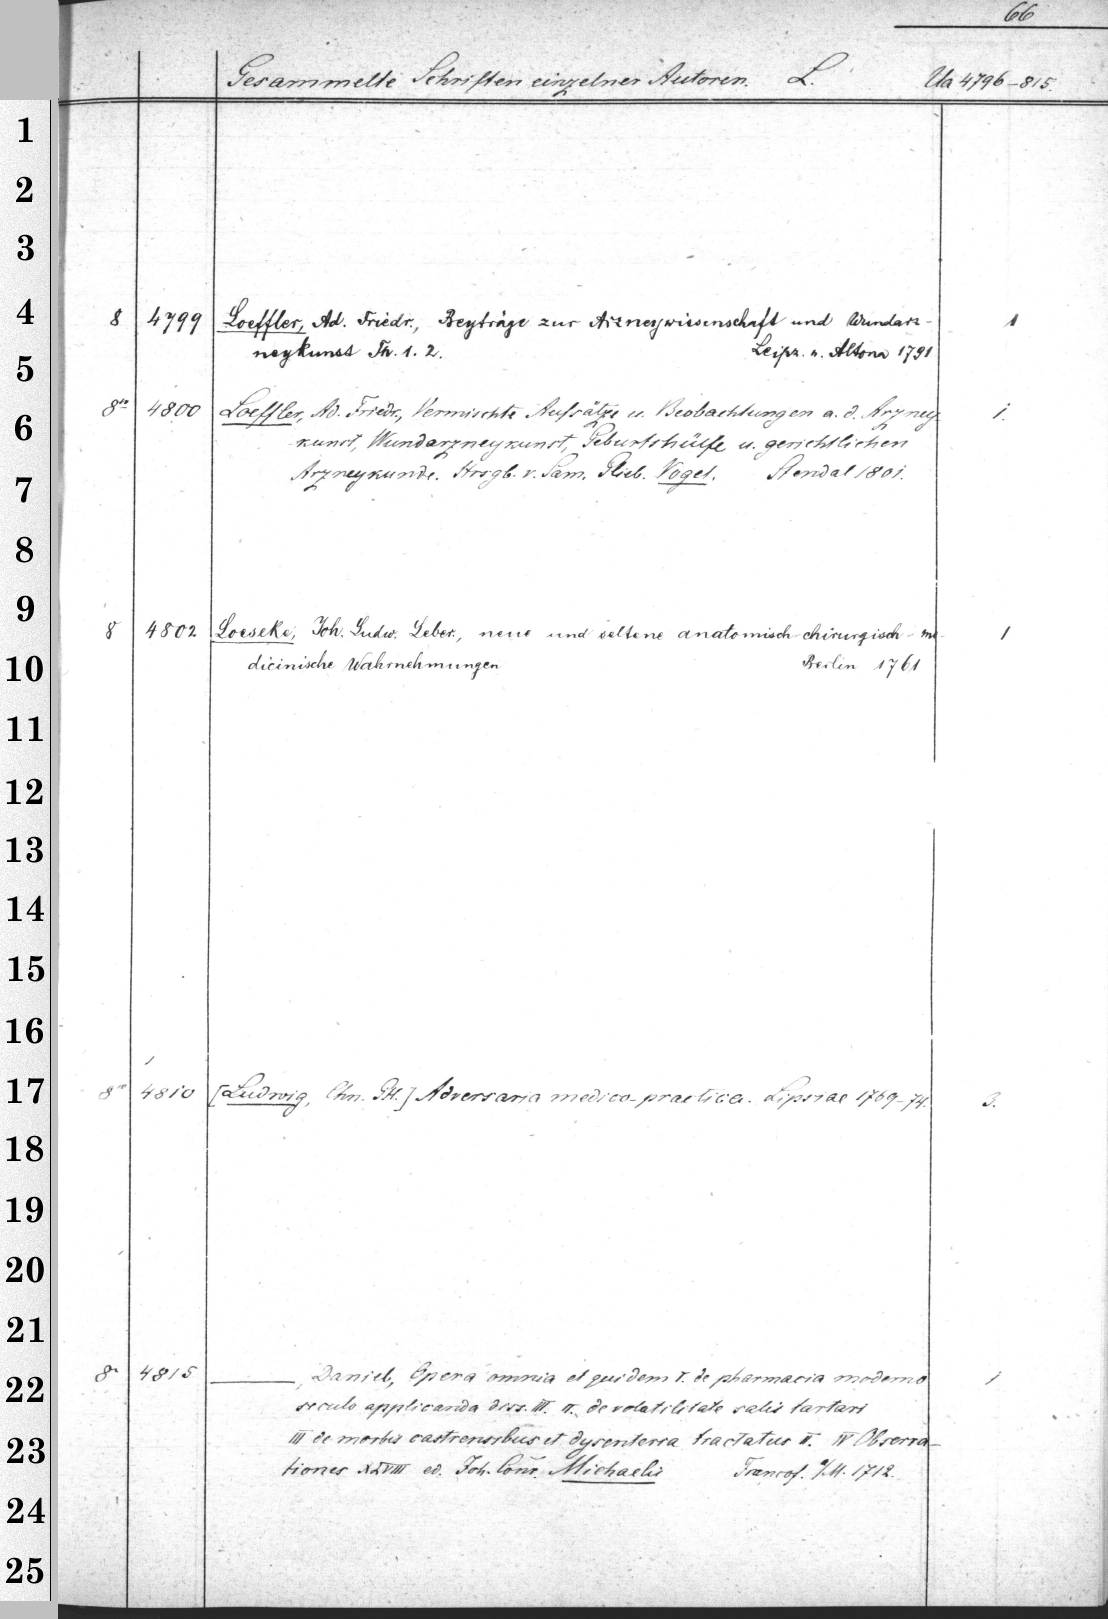 66
Gesammelte Schriften einzelner Autoren. L. Ua 4796-815.
1
2
3
4 8 4799 Loeffler, Ad. Friedr., Beyträge zur Arzneywissenschaft und Wundarz- 1
neykunst Th. 1. 2. Leipz. u. Altona 1791
5
6 8vo 4800 Loeffler, Ad. Friedr., Vermischte Aufsätze u. Beobachtungen a. d. Arzney- 1.
kunst, Wundarzneykunst, Geburtshülfe u. gerichtlichen
7 Arzneykunde. Hrsgb. v. Sam. Glieb. Vogel. Stendal 1801.
8
9 8 4802 Loeseke, Joh. Ludw. Leber., neue und seltene anatomisch-chirurgisch-me- 1
10 dicinische Wahrnehmungen Berlin 1761
11
12
13
14
15
16
17 8vo 4810 [Ludwig, Chn. Gtl.] Adversaria medico-practica. Lipsiae 1769-74. 3.
18
19
20
21
22 8o 4815 ———, Daniel, Opera omnia et quidem I. de pharmacia moderno 1
seculo applicanda diss. III. II. de volatilitate salis tartari
23 III de morbis castrensibus et dysenteria tractatus II. IV Observa-
tiones XLVIII ed. Joh. Conr. Michaelis Francof. a/M. 1712.
24
25